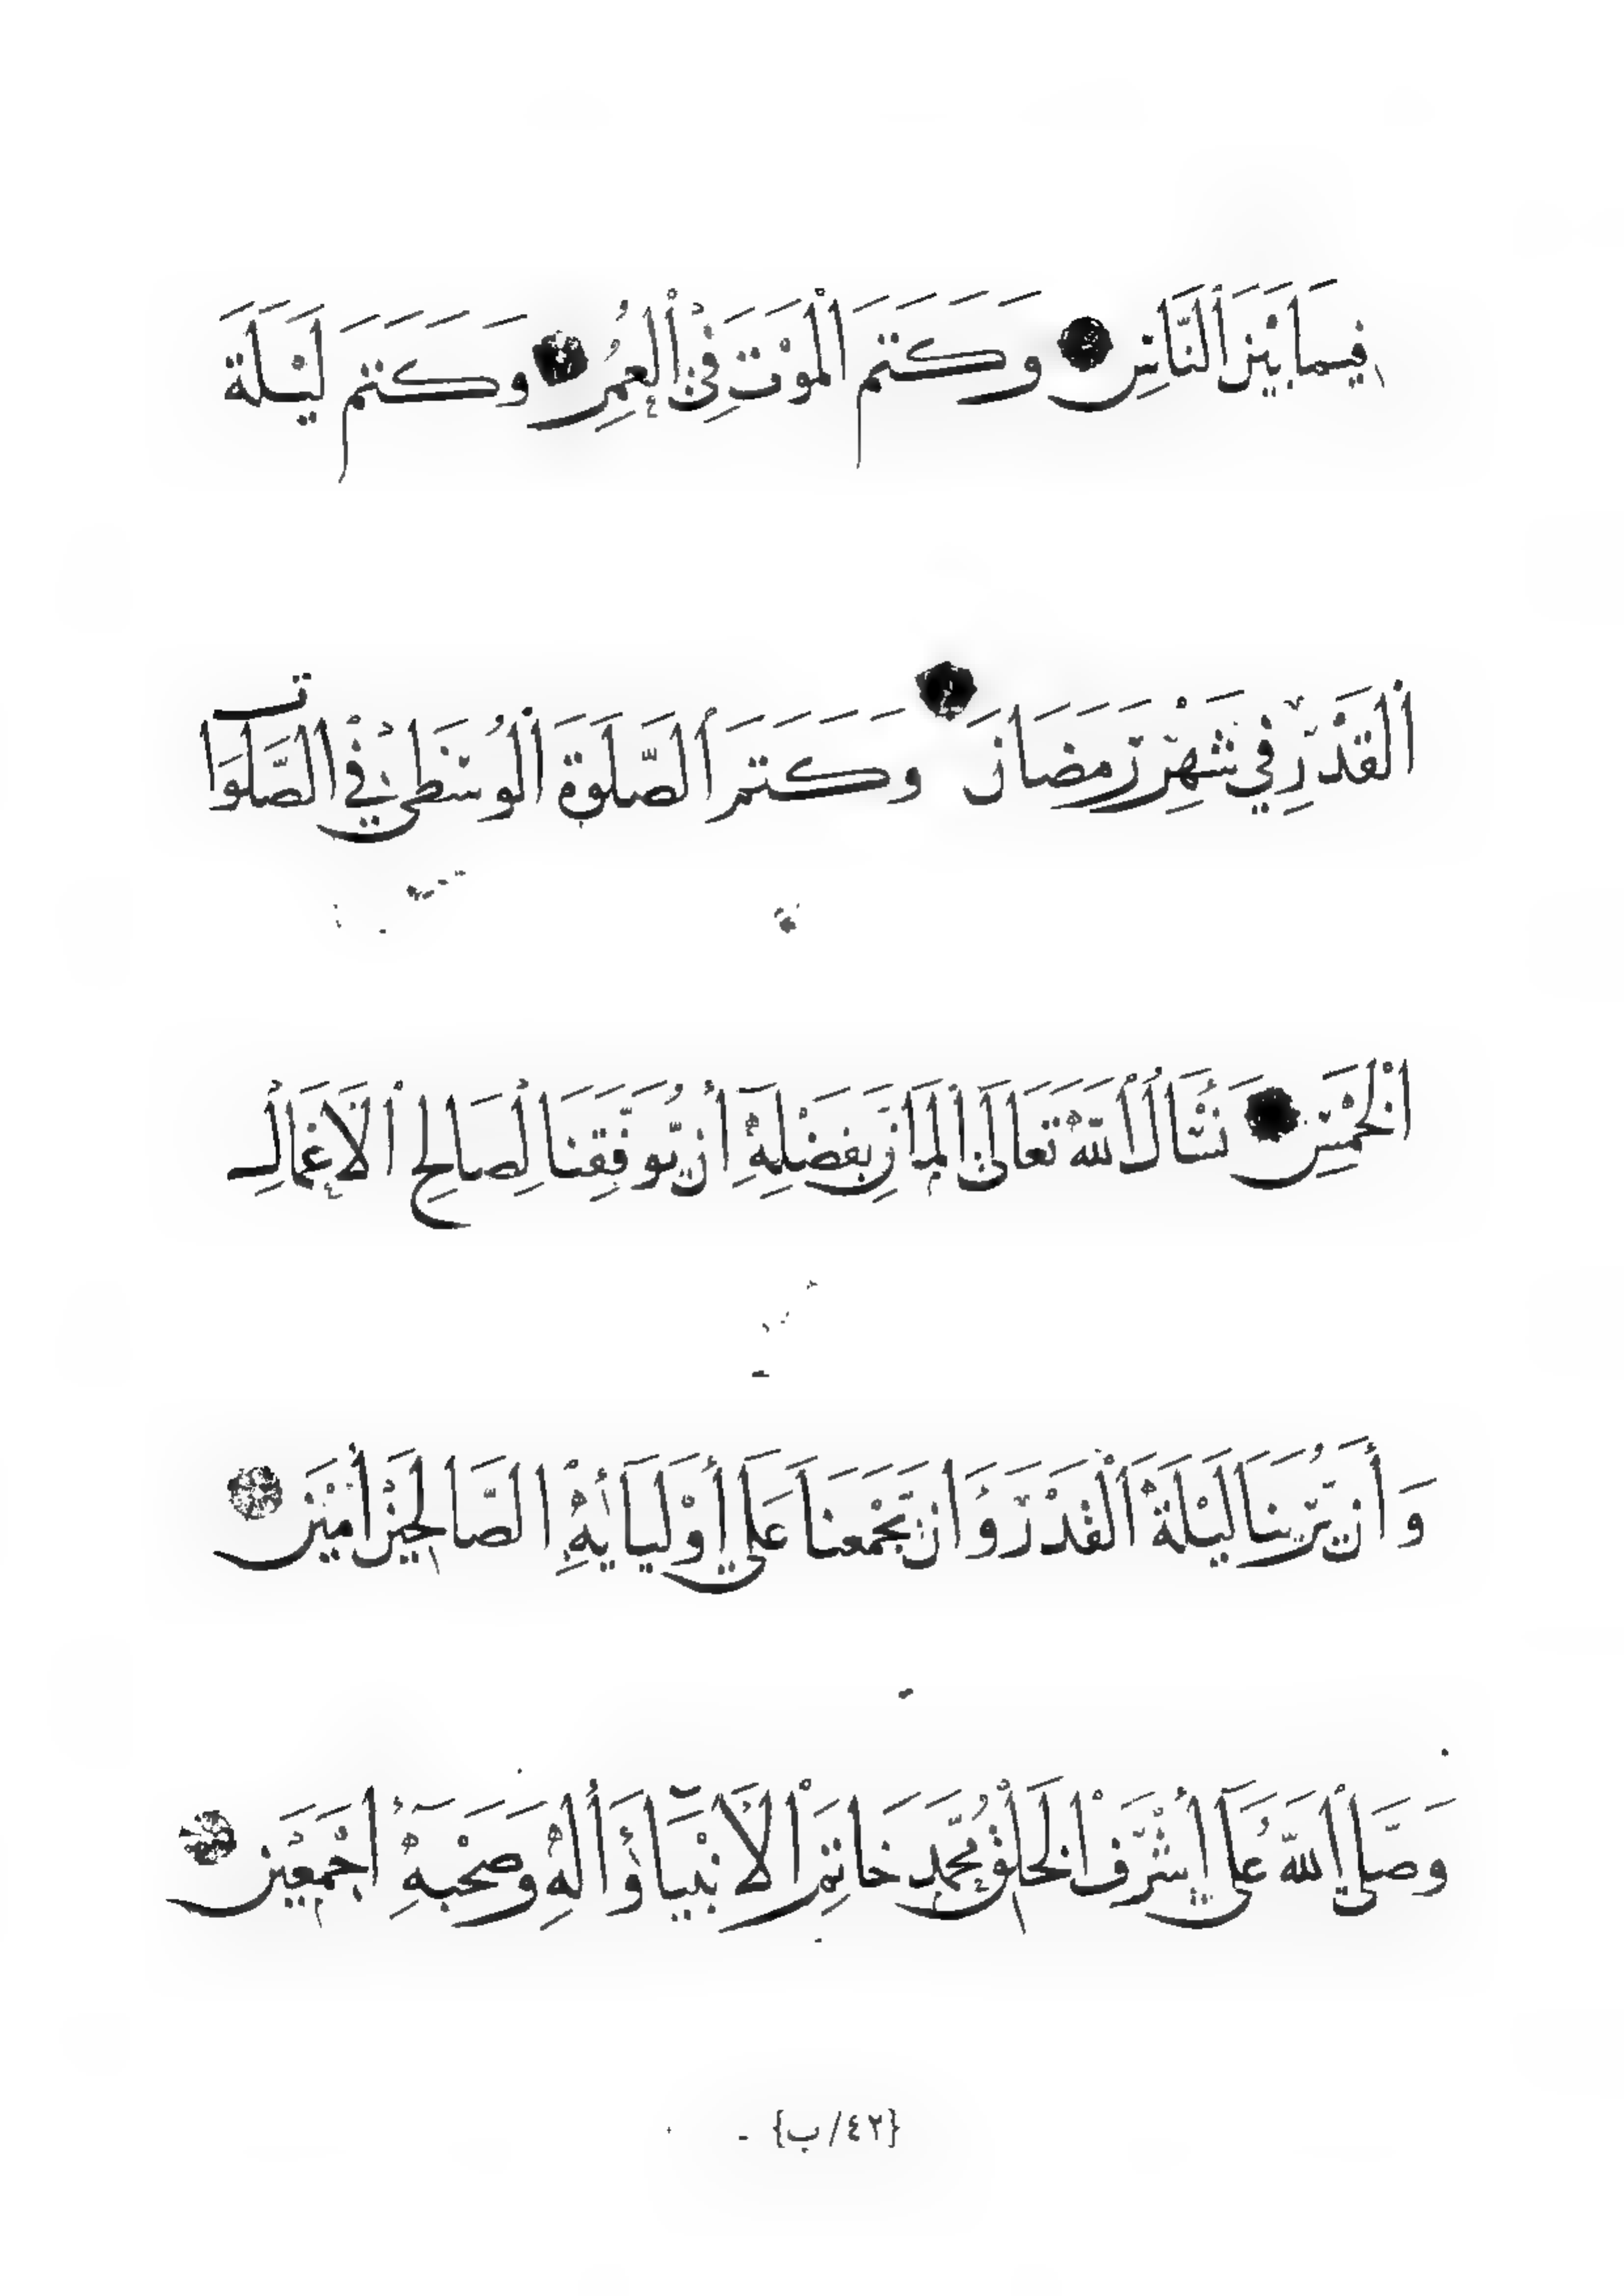 فِيمَا بَيْنَ النَّاسِ وَكَتَمَ الْمَوْتَ فِي الْعُمُرِ وَكَتَمَ لَيْلَةَ
الْقَدْرِ فِي شَهْرِ رَمَضَانَ وَكَتَمَ الصَّلَوةَ الْوُسْطَى فِي الصَّلَوَات
الْخَمْسِ نَسْأَلُ اللَّهَ تَعَالَى الْمَانَّ بِفَضْلِهِ أَنْ يُوَفِّقَنَا لِصَالِحِ الْأَعْمَالِ
وَأَنْ يُرِيَنَا لَيْلَةَ الْقَدْرِ وَأَنْ يَجْمَعَنَا عَلَى أَوْلِيَائِهِ الصَّالِحِينَ أَمِين
وَصَلَّى اللَّهُ عَلَى أَشْرَفِ الْخَلْقِ مُحَمَّدٍ خَاتَمِ الْأَنْبِيَاءِ وَأَلِهِ وَصَحْبِهِ أَجْمَعِينَ
{٤٢/ب}